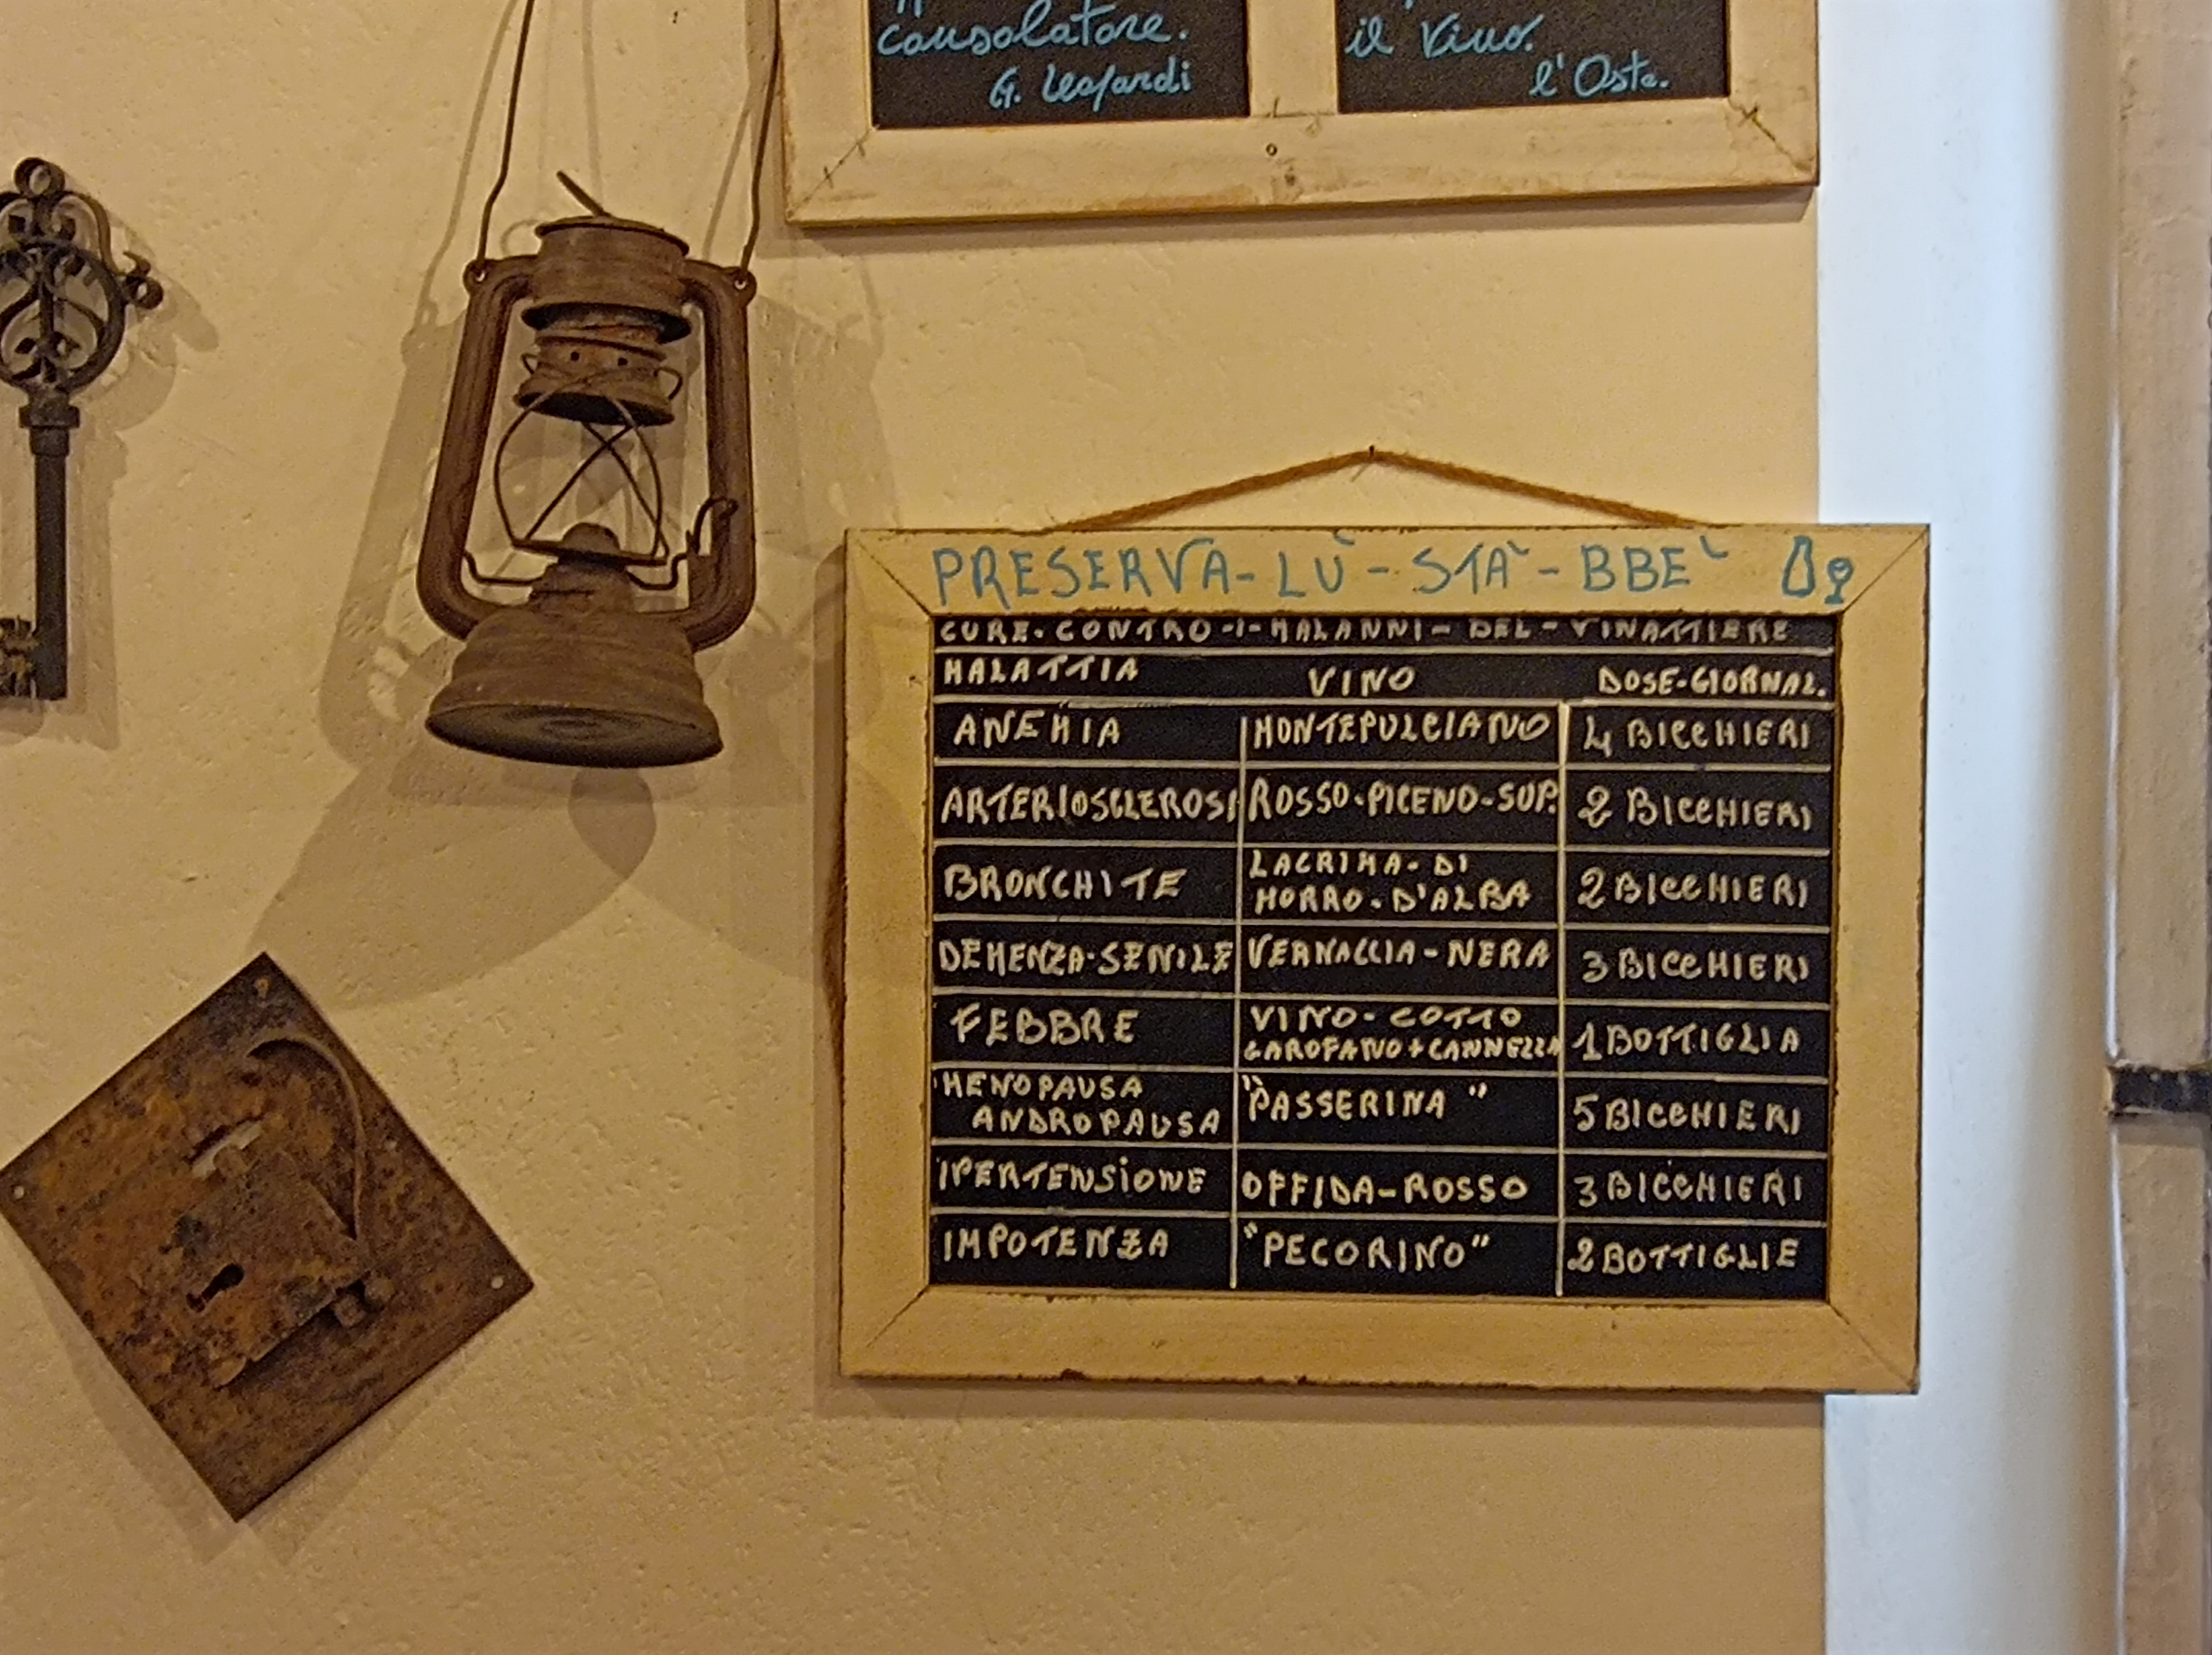 consolatore.
G. Leopardi
il vino.
l'Oste.
PRESERVA-LÙ-STÀ-BBE`
CURE-CONTRO-I-MALANNI-DEL-VINATTIERE
MALATTIA VINO DOSE-GIORNAL.
ANEMIA MONTEPULCIANO 4 BICCHIERI
ARTERIOSCLEROSI ROSSO-PICENO-SUP. 2 BICCHIERI
BRONCHITE LACRIMA-DI MORRO-D'ALBA 2 BICCHIERI
DEMENZA-SENILE VERNACCIA-NERA 3 BICCHIERI
FEBBRE VINO-COTTO GAROFANO+CANNELLA 1 BOTTIGLIA
MENOPAUSA ANDROPAUSA "PASSERINA" 5 BICCHIERI
IPERTENSIONE OFFIDA-ROSSO 3 BICCHIERI
IMPOTENZA "PECORINO" 2 BOTTIGLIE